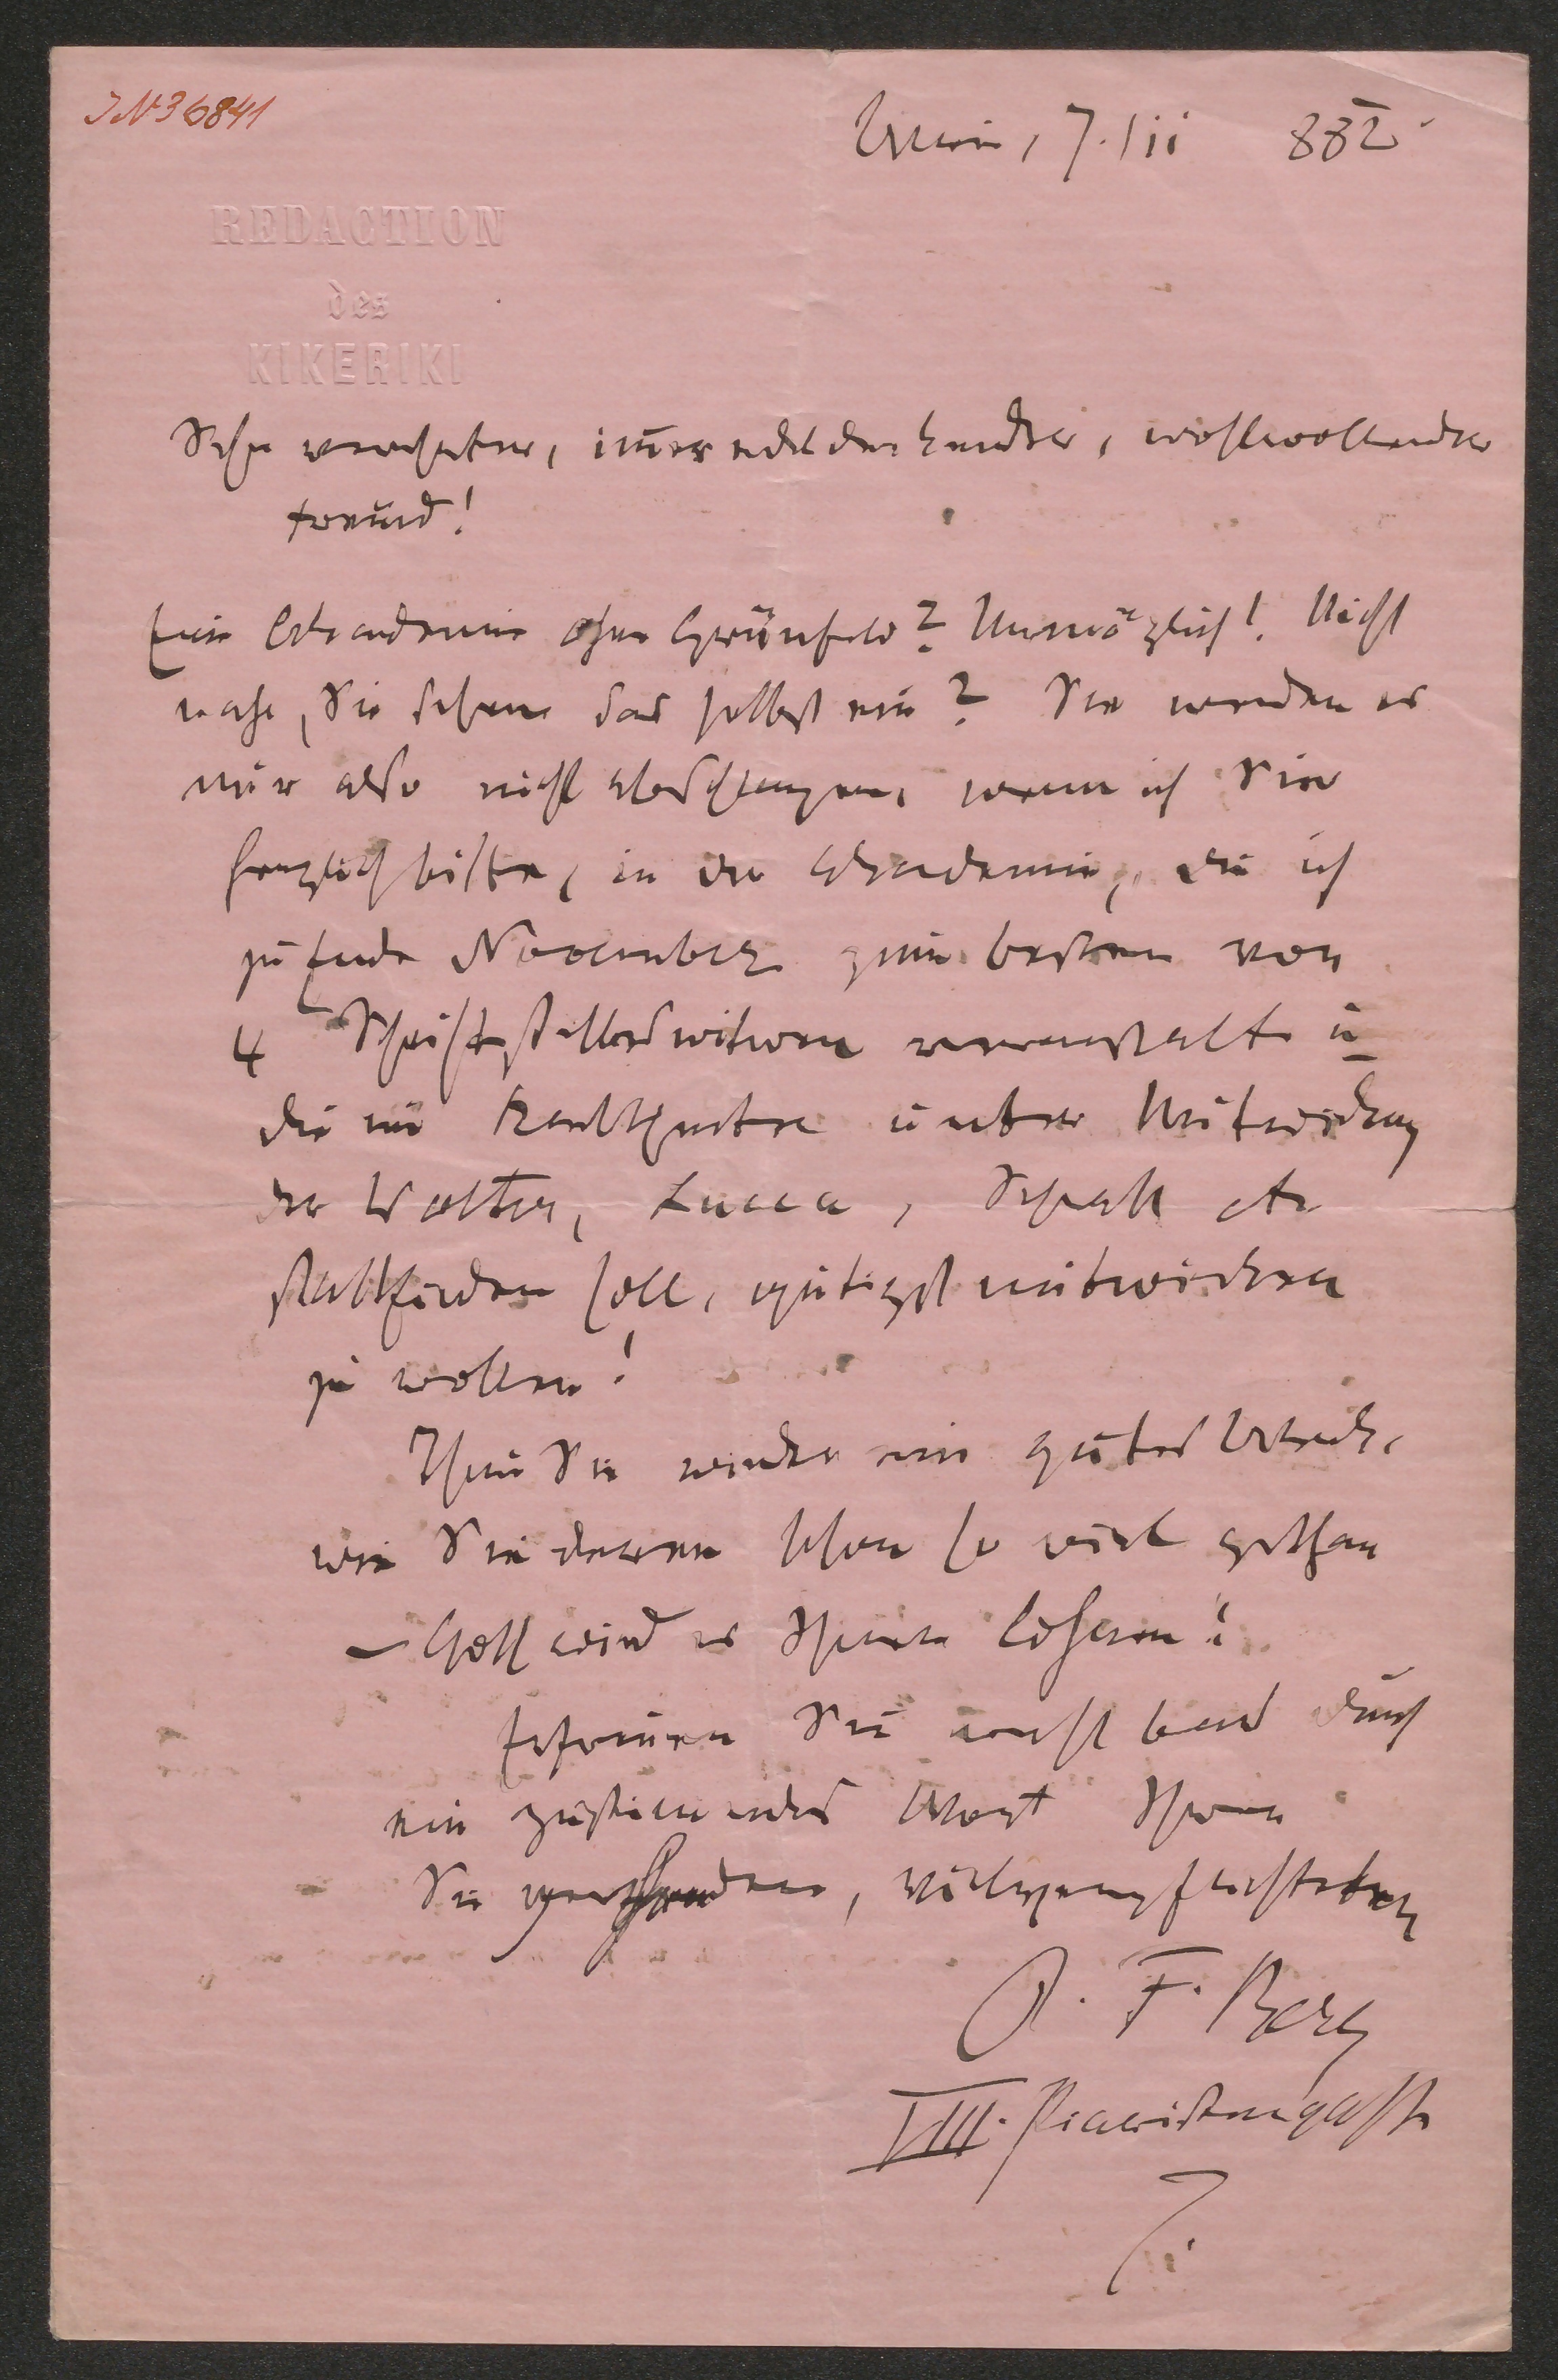 IN 36841
Wien, 7./11 882
REDACTION
des
KIKERIKI
Sehr verehrter, im̄er edeldenkender, wohlwollender
Freund!
Eine Akademie ohne Grünfeld? Unmöglich! Nicht
wahr, Sie sehen das selbst ein? Sie werden es
mir also nicht abschlagen, wenn ich Sie
herzlich bitte, in der Akademie, die ich
zu Ende November zum besten von
4 Schriftstellerswitwen veranstalte u
die im Karltheater unter Mitwirkung
der Wolter, Lucca, Schratt etc
stattfinden soll, gütigst mitwirken
zu wollen!
Thun Sie wieder ein gutes Werk,
wie Sie deren schon so viel gethan
– Gott wird es Ihnen lohnen!
Erfreuen Sie recht bald durch
ein zustimmendes Wort Ihren
Sie verehrenden, vielverpflichteten
O. F. Berg
VIII. Piaristengasse
7.